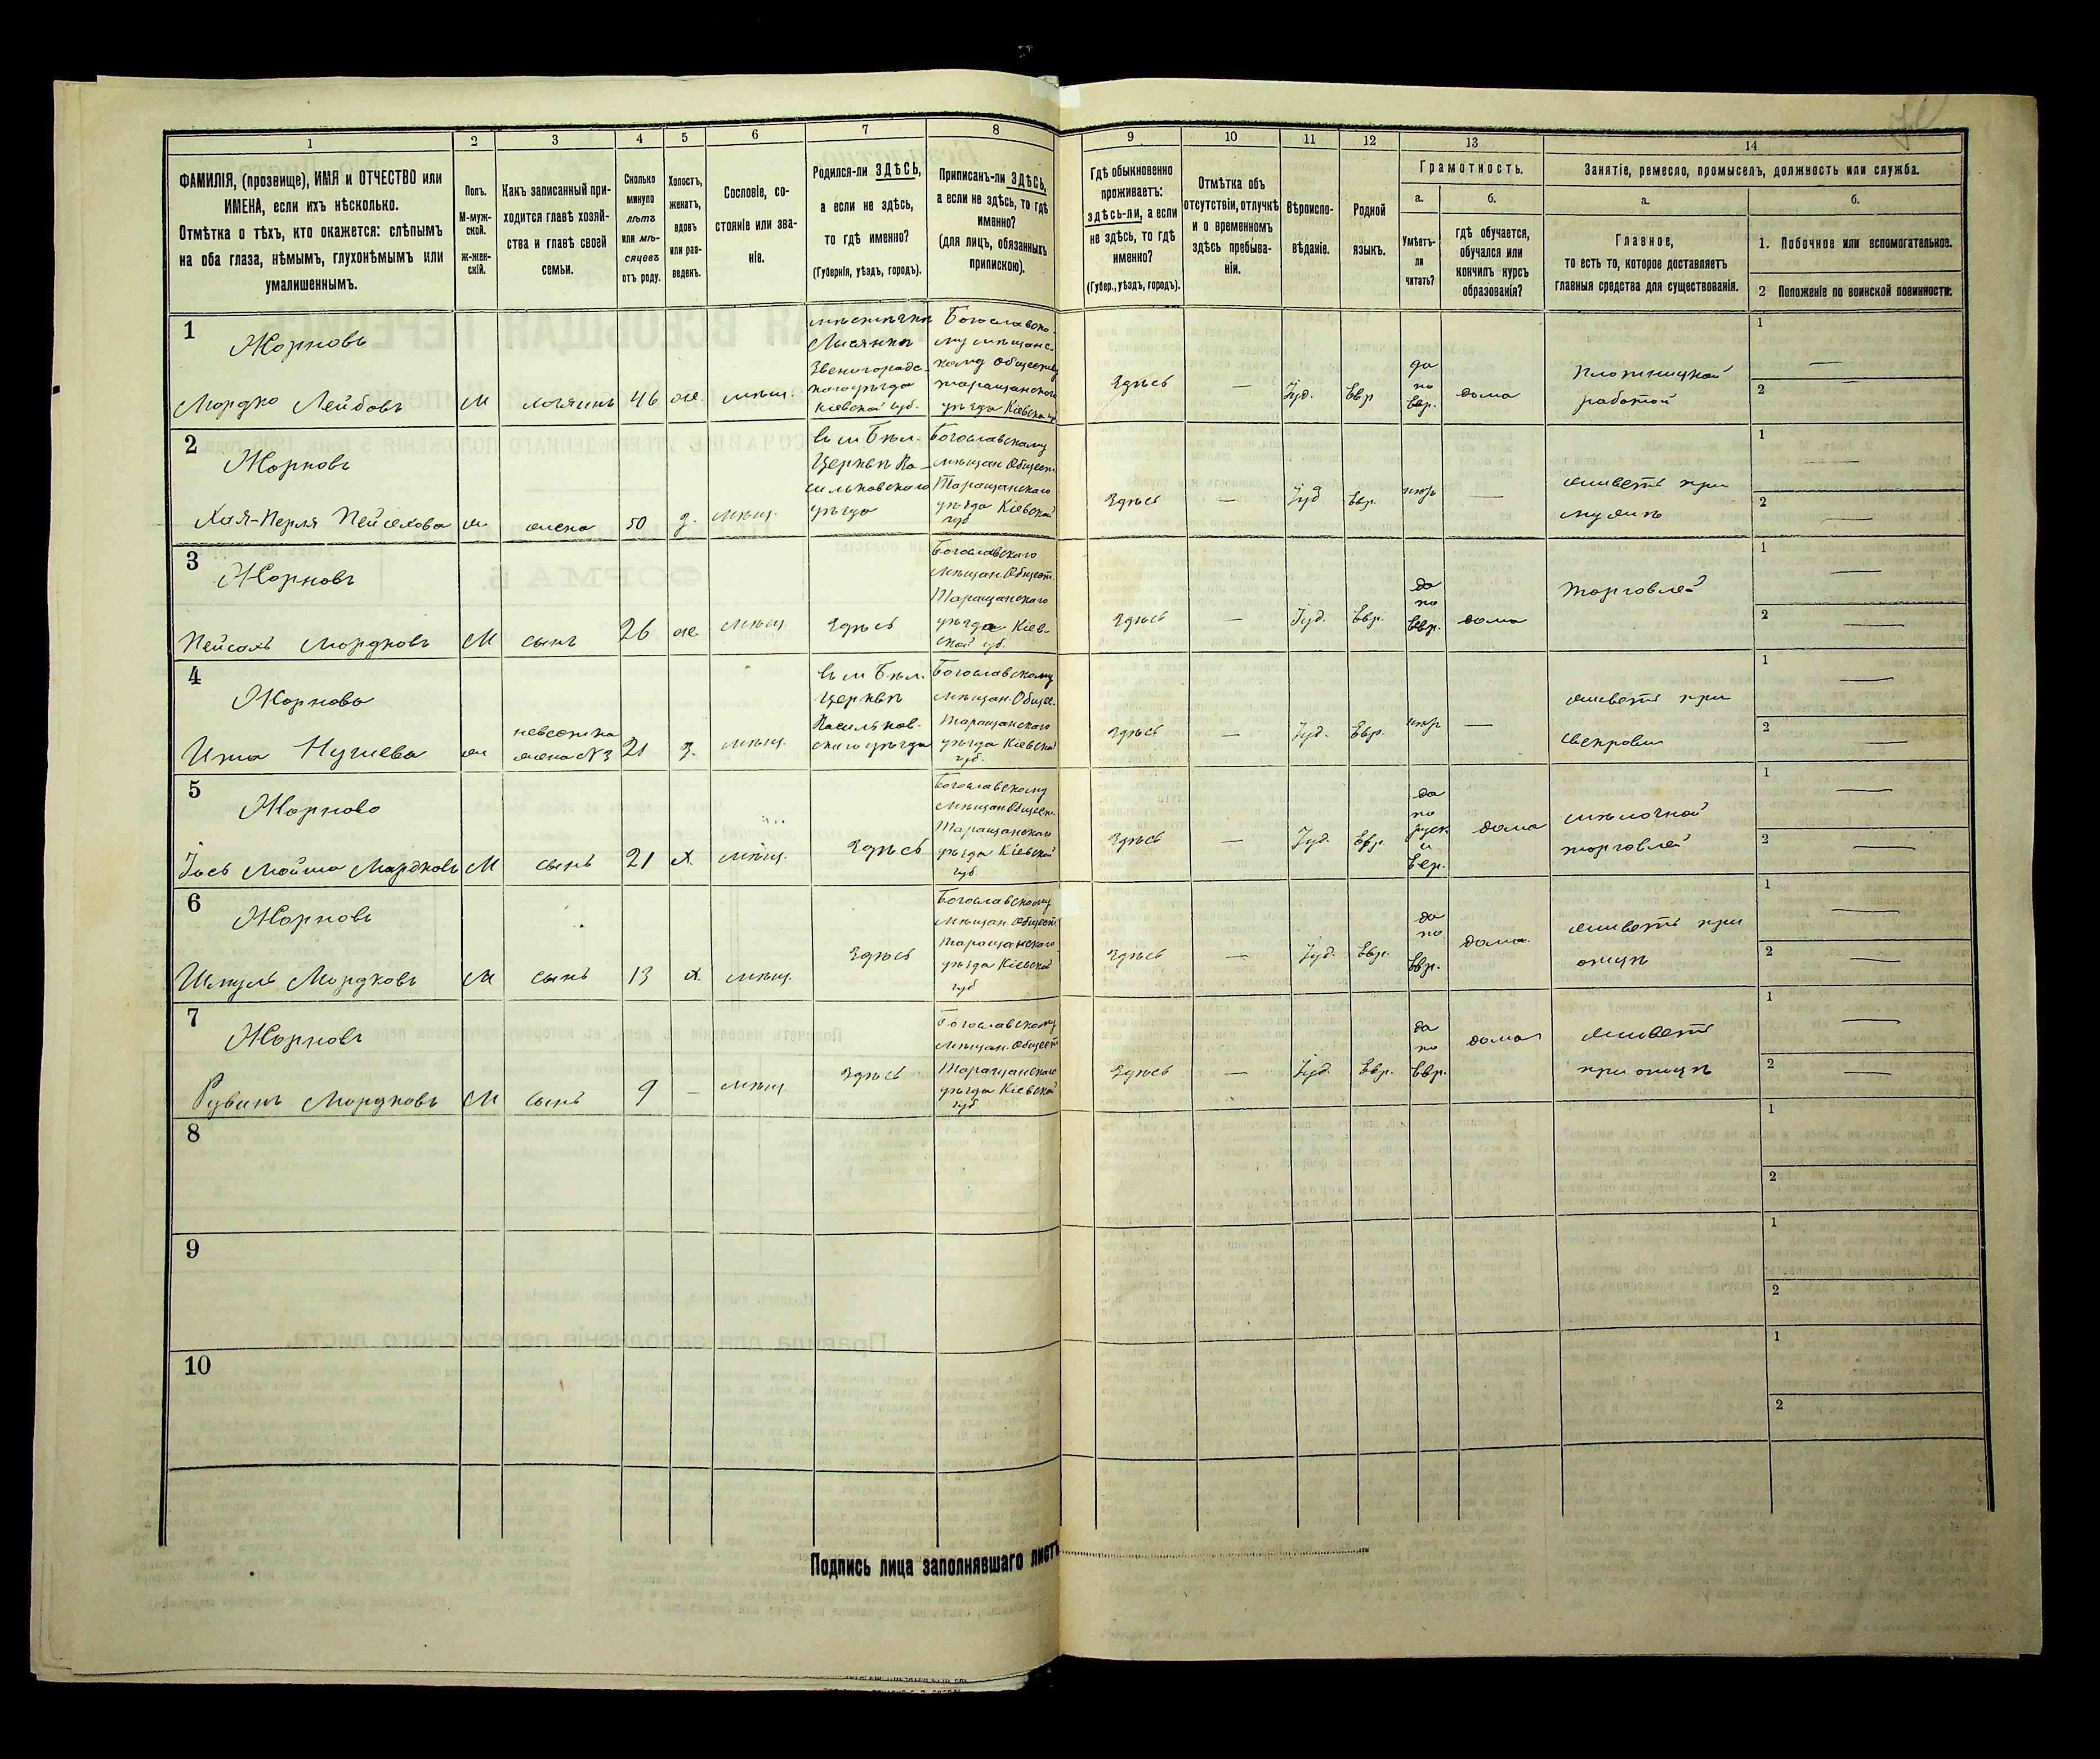 1
2
3
4
5
6
7
8
9
10
11
12
13
14
ФАМИЛІЯ, (прозвище), ИМЯ и ОТЧЕСТВО или
ИМЕНА, если ихъ нѣсколько.
Отмѣтка о тѣхъ, кто окажется: слѣпымъ
на оба глаза, нѣмымъ, глухонѣмымъ или
умалишеннымъ.
Полъ.
М-муж-
ской.
ж-жен-
скій.
Какъ записанный при-
ходится главѣ хозяй-
ства и главѣ своей
семьи.
Сколько
минуло
лѣтъ
или мѣ-
сяцевъ
отъ роду.
Холостъ,
женатъ,
вдовъ
или раз-
веденъ.
Сословіе, со-
стояніе или зва-
ніе.
Родился-ли ЗДѢСЬ,
а если не здѣсь,
то гдѣ именно?
(Губернія, уѣздъ, городъ).
Приписанъ-ли ЗДѢСЬ,
а если не здѣсь, то гдѣ
именно?
(для лицъ, обязанныхъ
припискою).
Гдѣ обыкновенно
проживаетъ:
здѣсь-ли, а если
не здѣсь, то гдѣ
именно?
(Губер., уѣздъ, городъ).
Отмѣтка объ
отсутствіи, отлучкѣ
и о временномъ
здѣсь пребыва-
ніи.
Вѣроиспо-
вѣданіе.
Родной
языкъ.
Грамотность.
а.
Умѣетъ-
ли
читать?
б.
гдѣ обучается,
обучался или
кончилъ курсъ
образованія?
Занятіе, ремесло, промыселъ, должность или служба.
а.
Главное,
то есть то, которое доставляетъ
главныя средства для существованія.
б.
1. Побочное или вспомогательное.
2 Положеніе по воинской повинности.
1
Жорновъ
Мордко Лейбовъ
М
хозяинъ
46
ж.
мѣщ.
мѣстечкѣ
Лысянкѣ
Звенигородс-
кого уѣзда
Кіевской губ.
Богославско-
му мѣщанс-
кому обществу
таращанского
уѣзда Кіевской губ
Здѣсь
—
Іуд.
Евр
да
по
Евр.
дома
Плотницкой
работой
1 —
2
2
Жорновъ
Хая-Перля Пейсахова
ж
жена
50
з.
мѣщ.
въ м Бѣл.
Церкви Ва-
сильковского
уѣзда
Богославскому
мѣщан. Общест.
Таращанского
уѣзда Кіевской
губ
Здѣсь
—
Іуд
Евр.
—
живетъ при
мужѣ
1 —
2
3
Жорновъ
Пейсахъ Мордковъ
М
сынъ
26
ж.
мѣщ.
Здѣсь
Богославского
мѣщан. Общест.
Таращанского
уѣзда Кіев-
ской губ.
Здѣсь
—
Іуд.
Евр.
да
по
Евр.
дома
Торговлей
1 —
2 —
4
Жорнова
ж
невестка
жена №3
21
з.
мѣщ.
въ м Бѣл.
Церкви
Васильков-
ского уѣзда
Богославскому
мѣщан. Общес.
Таращанского
уѣзда Кіевской
губ.
Здѣсь
—
Іуд.
Евр.
—
живетъ при
свекрови
1 —
2 —
5
Жорново
Іось Мойша Мордковъ
М
сынъ
21
х.
мѣщ.
Здѣсь
Богославскому
мѣщан Общест.
Таращанского
уѣзда Кіевской
губ.
Здѣсь
—
Іуд.
Евр.
да
по
руск
и
Евр.
дома
мѣлочной
торговлей
1 —
2 —
6
Жорновъ
Шмуль Мордковъ
М
сынъ
13
х.
мѣщ.
Здѣсь
Богославскому
мѣщан. Общест.
Таращанского
уѣзда Кіевской
губ
Здѣсь
—
Іуд.
Евр.
да
по
Евр.
дома
живетъ при
отцѣ
1 —
2 —
7
Жорновъ
Рувинъ Мордковъ
М
сынъ
9
—
мѣщ.
Здѣсь
Богославскому
мѣщан. Общест
Таращанского
уѣзда Кіевской
губ
Здѣсь
—
Іуд.
Евр.
да
по
Евр.
дома
живетъ
при отцѣ
1 —
2 —
8
1
2
9
1
2
10
1
2
Подпись лица заполнявшаго листъ